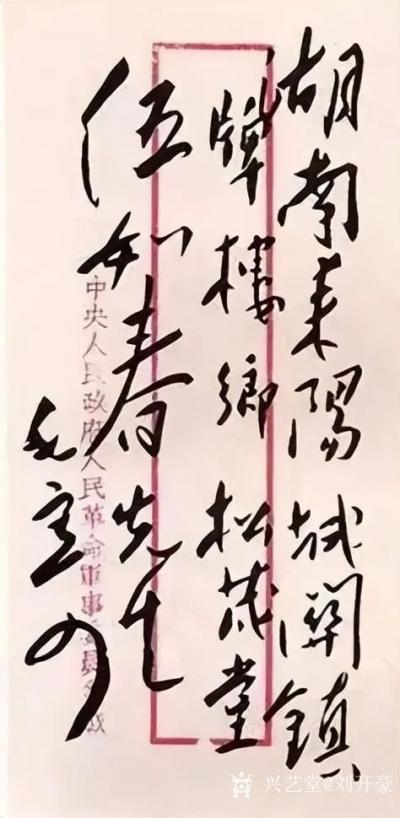 胡南耒陽城關鎮
牌樓鄉 松茂堂
伍如春先生
毛
中央人民政府人民革命軍事委員會緘
兴艺堂@刘开豪